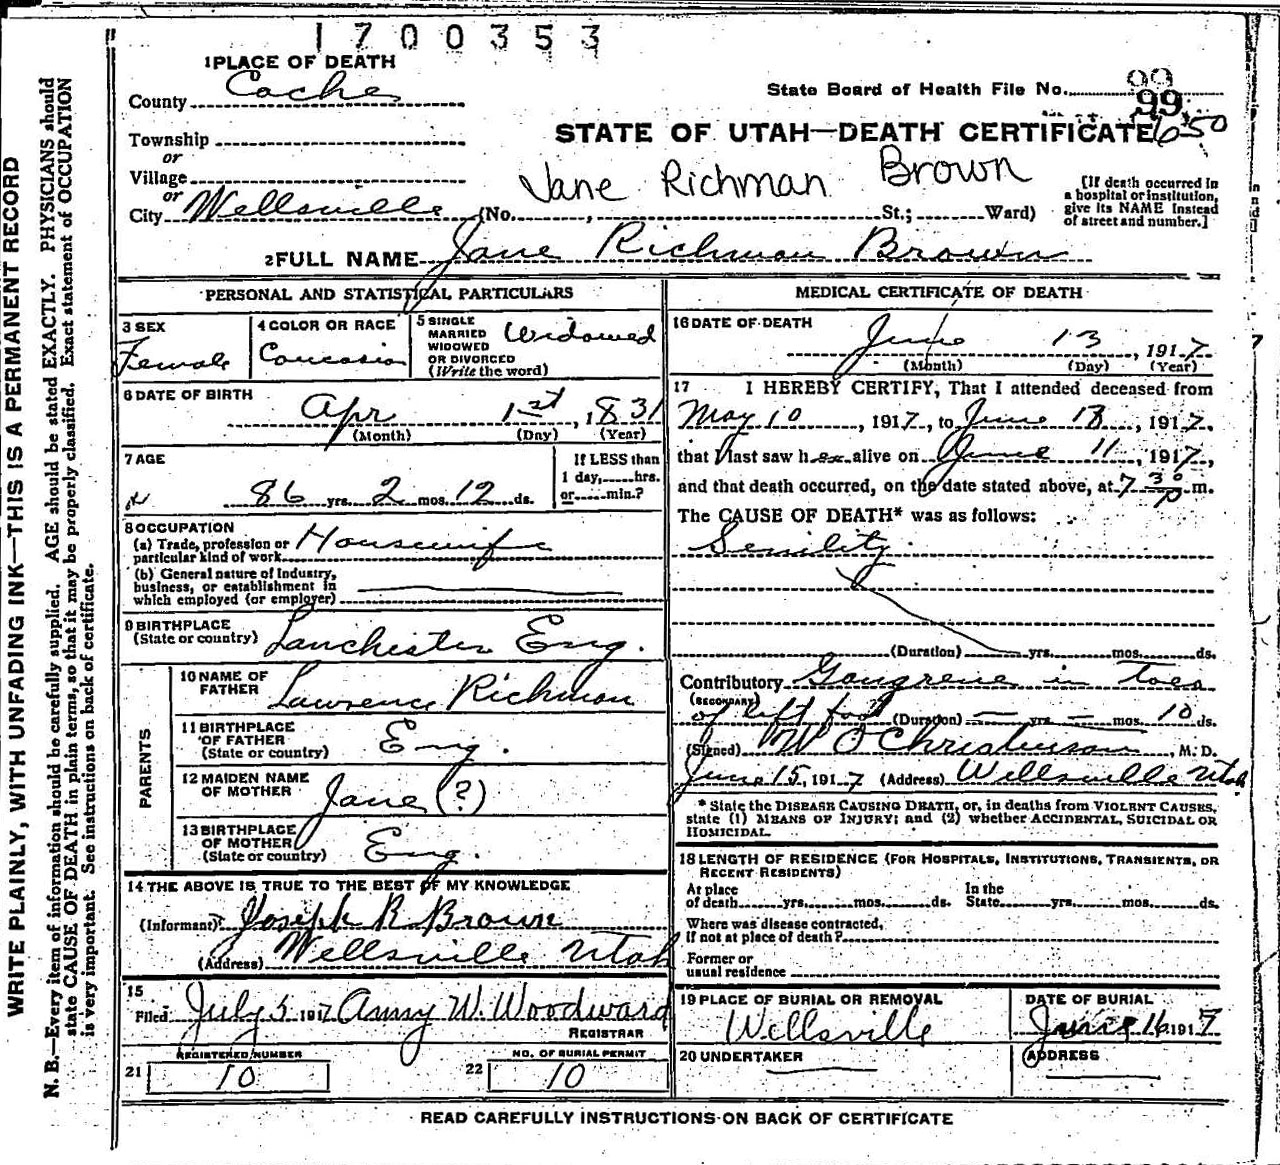 1700353
1 PLACE OF DEATH
County Cache
State Board of Health File No. 99
99
Township
STATE OF UTAH—DEATH CERTIFICATE 650
or
Village
Jane Richman Brown
or
City Wellsville (No. , St.; Ward)
[If death occurred in
a hospital or institution,
give its NAME instead
of street and number.]
2 FULL NAME Jane Richman Brown
PERSONAL AND STATISTICAL PARTICULARS
3 SEX
Female
4 COLOR OR RACE
Caucasian
5 SINGLE
MARRIED
WIDOWED
OR DIVORCED
(Write the word)
Widowed
6 DATE OF BIRTH
Apr 1st, 1831
(Month) (Day) (Year)
7 AGE
86 yrs. 2 mos. 12 ds.
If LESS than
1 day, hrs.
or min.?
8 OCCUPATION
(a) Trade, profession or
particular kind of work Housewife
(b) General nature of Industry,
business, or establishment in
which employed (or employer)
9 BIRTHPLACE
(State or country) Lanchester Eng.
PARENTS
10 NAME OF
FATHER Lawrence Richman
11 BIRTHPLACE
OF FATHER
(State or country) Eng.
12 MAIDEN NAME
OF MOTHER Jane (?)
13 BIRTHPLACE
OF MOTHER
(State or country) Eng.
14 THE ABOVE IS TRUE TO THE BEST OF MY KNOWLEDGE
(Informant) Joseph R Brown
(Address) Wellsville Utah
15
Filed July 5 1917 Amy W. Woodward
REGISTRAR
REGISTERED NUMBER
21 10
NO. OF BURIAL PERMIT
22 10
MEDICAL CERTIFICATE OF DEATH
16 DATE OF DEATH
June 13, 1917
(Month) (Day) (Year)
17 I HEREBY CERTIFY, That I attended deceased from
May 10, 1917, to June 13, 1917,
that I last saw her alive on June 11, 1917,
and that death occurred, on the date stated above, at 7 30 p m.
The CAUSE OF DEATH* was as follows:
Senility
(Duration) yrs. mos. ds.
Contributory Gangrene in Toes
(SECONDARY) of left foot (Duration) — yrs. — mos. 10 ds.
(Signed) W O Christenson, M. D.
June 15, 1917 (Address) Wellsville Utah
* State the DISEASE CAUSING DEATH, or, in deaths from VIOLENT CAUSES,
state (1) MEANS OF INJURY; and (2) whether ACCIDENTAL, SUICIDAL OR
HOMICIDAL.
18 LENGTH OF RESIDENCE (FOR HOSPITALS, INSTITUTIONS, TRANSIENTS, OR
RECENT RESIDENTS)
At place
of death yrs. mos. ds.
In the
State yrs. mos. ds.
Where was disease contracted,
If not at place of death?
Former or
usual residence
19 PLACE OF BURIAL OR REMOVAL
Wellsville
DATE OF BURIAL
June 16 1917
20 UNDERTAKER
ADDRESS
READ CAREFULLY INSTRUCTIONS ON BACK OF CERTIFICATE
WRITE PLAINLY, WITH UNFADING INK—THIS IS A PERMANENT RECORD
N. B.—Every item of information should be carefully supplied. AGE should be stated EXACTLY. PHYSICIANS should
state CAUSE OF DEATH in plain terms, so that it may be properly classified. Exact statement of OCCUPATION
is very important. See instructions on back of certificate.